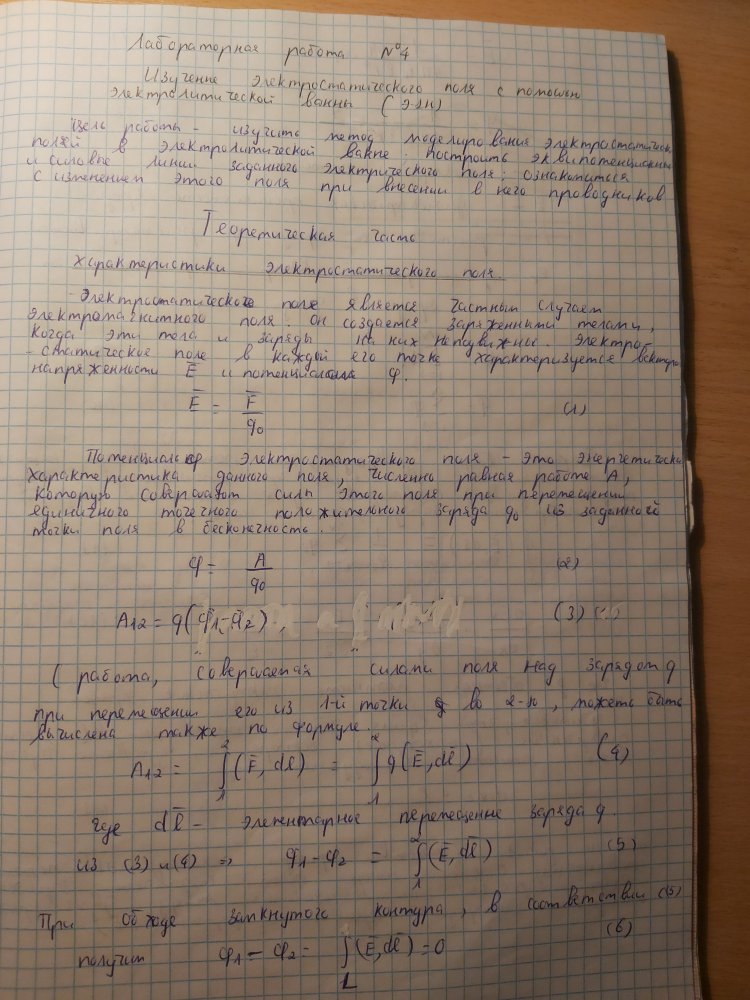 Лабораторная работа №4
Изучение электростатического поля с помощью
электролитической ванны (ЭЛН)
Цель работы - изучить метод моделирования электростатическ
полей в электролитической ванне. построить эквипотенциальн
и силовые линии заданного электрического поля; ознакомиться
с изменением этого поля при внесении в него проводников
Теоретическая часть
Характеристики электростатического поля
Электростатическое поле является частным случаем
электромагнитного поля. Он создается заряженными телами,
когда эти тела и заряды на них неподвижны. Электро
- статическое поле в каждый его точке характеризуется вектором
напряженности E̅ и потенциалом φ.
E̅ = F̅/q₀ (1)
Потенциал φ электростатического поля - это энергетическ
характеристика данного поля, численно равная работе A,
которую совершают силы этого поля при перемещении
единичного точечного положительного заряда q₀ из заданной
точки поля в бесконечность.
φ = A/q₀ (2)
A₁₂ = q(φ₁-φ₂), (3)
(работа, совершаемая силами поля над зарядом q
при перемещении его из 1-й точки во 2-ю, можеть быть
вычислена также по формуле
A₁₂ = ∫₁²(F̅, dl̅) = ∫₁²q(E̅, dl̅) (4)
где dl̅ - элементарное перемещение заряда q.
из (3) и (4) => φ₁-φ₂ = ∫₁²(E̅, dl̅) (5)
При обходе замкнутого контура, в соответствии (5)
получим φ₁ - φ₂ = ∫_L(E̅, dl̅) = 0 (6)